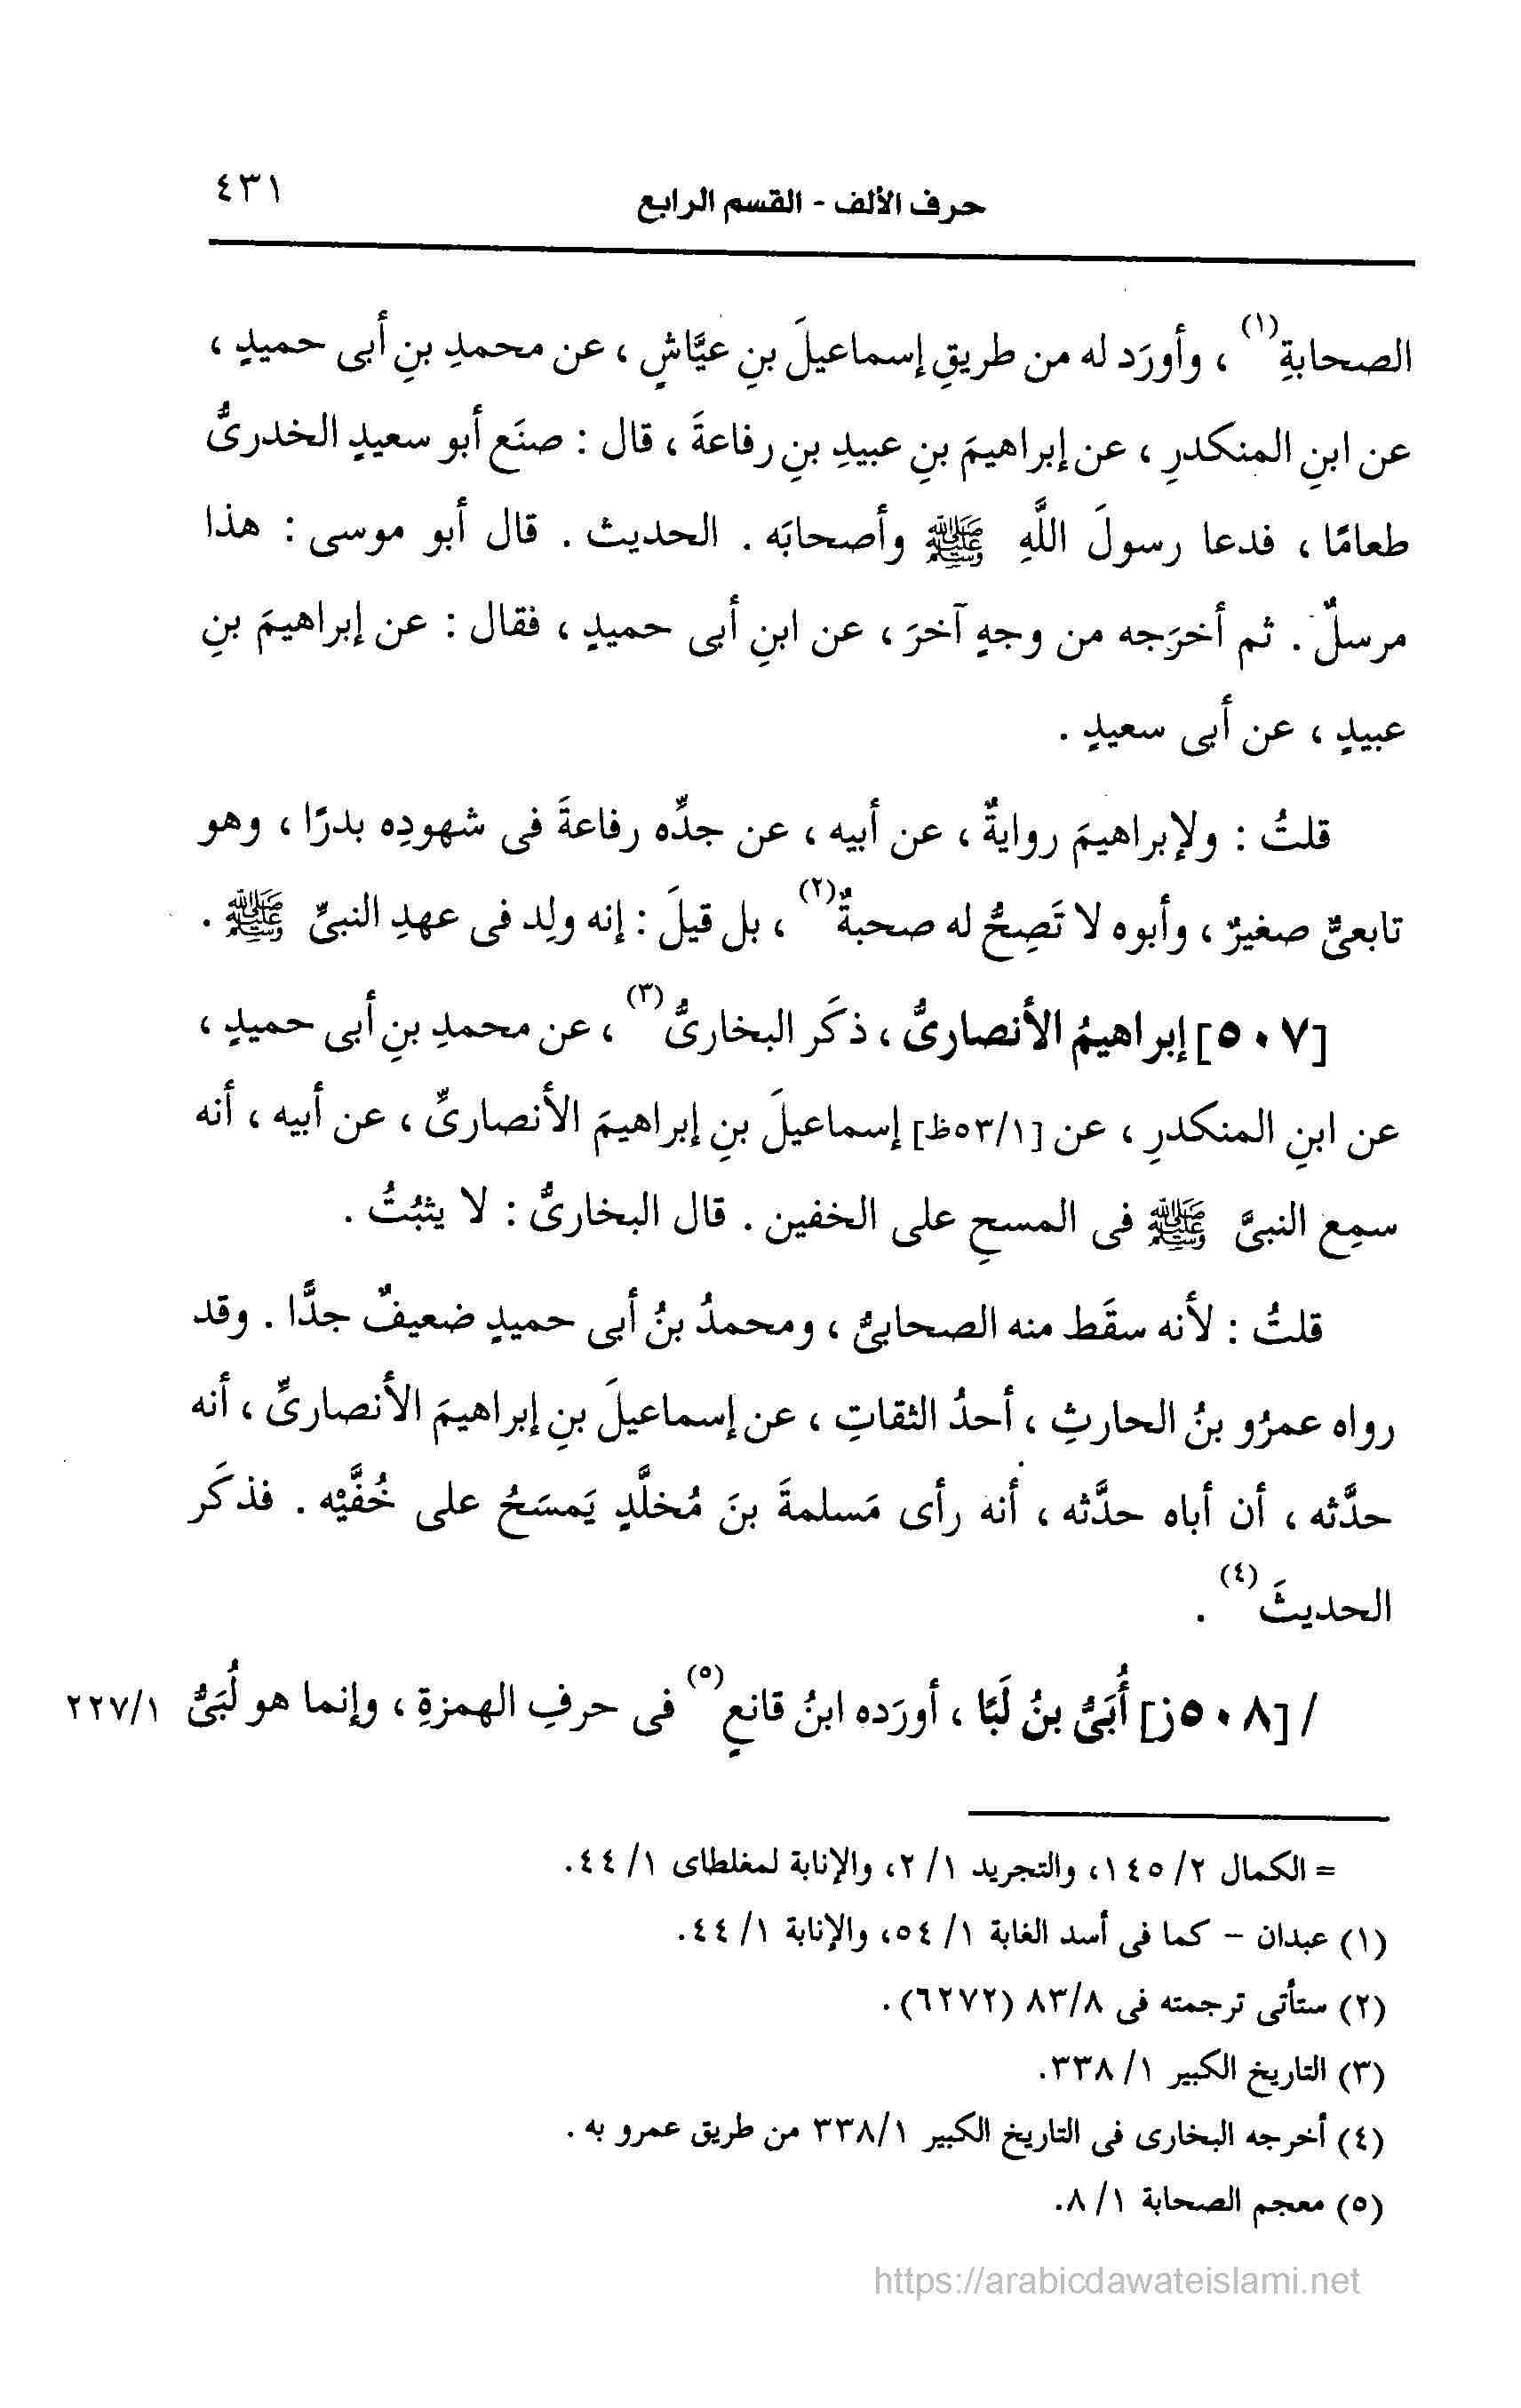 حرف الألف - القسم الرابع ٤٣١
الصحابةِ(١) ، وأورَد له من طريقِ إسماعيلَ بنِ عيَّاشٍ ، عن محمدِ بنِ أبى حميدٍ ،
عن ابنِ المنكدرِ ، عن إبراهيمَ بنِ عبيدِ بنِ رفاعةَ ، قال : صنَع أبو سعيدٍ الخدرىُّ
طعامًا ، فدعا رسولَ اللَّهِ ﷺ وأصحابَه . الحديث . قال أبو موسى : هذا
مرسلٌ . ثم أخرَجه من وجهٍ آخرَ ، عن ابنِ أبى حميدٍ ، فقال : عن إبراهيمَ بنِ
عبيدٍ ، عن أبى سعيدٍ .
قلتُ : ولإبراهيمَ روايةٌ ، عن أبيه ، عن جدِّه رفاعةَ فى شهودِه بدرًا ، وهو
تابعىٌّ صغيرٌ ، وأبوه لا تَصِحُّ له صحبةٌ(٢) ، بل قيلَ : إنه ولِد فى عهدِ النبىِّ ﷺ .
[٥٠٧] إبراهيمُ الأنصارىُّ ، ذكَر البخارىُّ(٣) ، عن محمدِ بنِ أبى حميدٍ ،
عن ابنِ المنكدرِ ، عن [٥٣/١ظ] إسماعيلَ بنِ إبراهيمَ الأنصارىِّ ، عن أبيه ، أنه
سمِع النبىَّ ﷺ فى المسحِ على الخفين . قال البخارىُّ : لا يثبُتُ .
قلتُ : لأنه سقَط منه الصحابىُّ ، ومحمدُ بنُ أبى حميدٍ ضعيفٌ جدًّا . وقد
رواه عمرُو بنُ الحارثِ ، أحدُ الثقاتِ ، عن إسماعيلَ بنِ إبراهيمَ الأنصارىِّ ، أنه
حدَّثه ، أن أباه حدَّثه ، أنه رأى مَسلمةَ بنَ مُخلَّدٍ يَمسَحُ على خُفَّيْه . فذكَر
الحديثَ(٤) .
/ [٥٠٨ز] أُبَىُّ بنُ لَبًا ، أورَده ابنُ قانعٍ(٥) فى حرفِ الهمزةِ ، وإنما هو لُبَىُّ ٢٢٧/١
= الكمال ٢/ ١٤٥، والتجريد ١/ ٢، والإنابة لمغلطاى ١/ ٤٤.
(١) عبدان - كما فى أسد الغابة ١/ ٥٤، والإنابة ١/ ٤٤.
(٢) ستأتى ترجمته فى ٨٣/٨ (٦٢٧٢).
(٣) التاريخ الكبير ١/ ٣٣٨.
(٤) أخرجه البخارى فى التاريخ الكبير ٣٣٨/١ من طريق عمرو به .
(٥) معجم الصحابة ١/ ٨.
https://arabicdawateislami.net